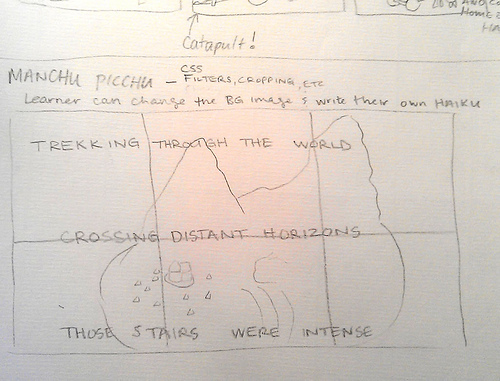 Catapult!
MANCHU PICCHU – CSS FILTERS, CROPPING, ETC
Learner can change the BG image & write their own HAIKU
TREKKING THROUGH THE WORLD
CROSSING DISTANT HORIZONS
THOSE STAIRS WERE INTENSE